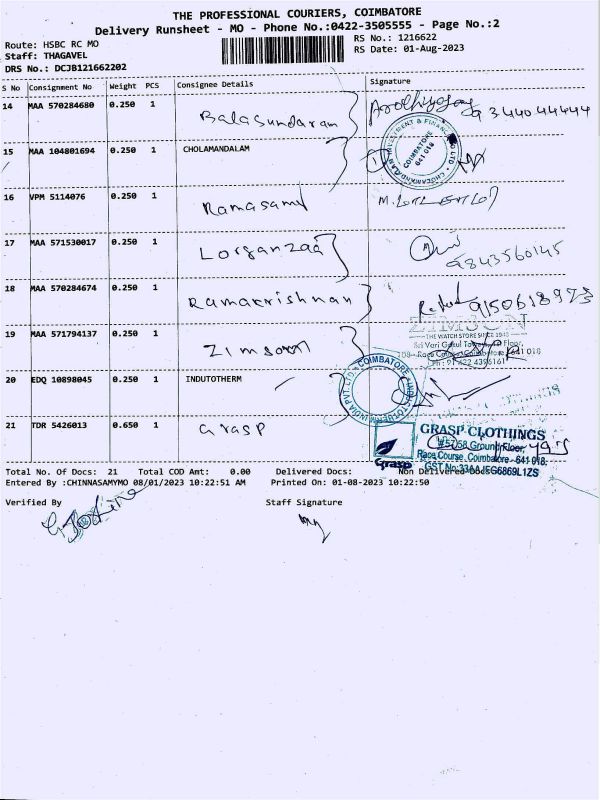 THE PROFESSIONAL COURIERS, COIMBATORE
Delivery Runsheet - MO - Phone No.:0422-3505555 - Page No.:2
Route: HSBC RC MO
RS No.: 1216622
Staff: THAGAVEL
RS Date: 01-Aug-2023
DRS No.: DCJB121662202
S No Consignment No Weight PCS Consignee Details Signature
14 MAA 570284680 0.250 1 Balasundaram 9344044444
15 MAA 104801694 0.250 1 CHOLAMANDALAM
COIMBATORE
641 018
16 VPM 5114076 0.250 1 Ramasamy
17 MAA 571530017 0.250 1 Lorganzaa 9843560145
18 MAA 570284674 0.250 1 Ramakrishnan 9150618973
ZIMSON
THE WATCH STORE SINCE 1948
19 MAA 571794137 0.250 1 Zimson
20 EDQ 10898045 0.250 1 INDUTOTHERM
COIMBATORE
21 TDR 5426013 0.650 1 Grasp
Grasp
GRASP CLOTHINGS
Ground Floor,
Race Course, Coimbatore - 641 018.
GST No:33AAJFG6869L1ZS
Total No. Of Docs: 21 Total COD Amt: 0.00 Delivered Docs: Non Delivered Docs:
Entered By :CHINNASAMYMO 08/01/2023 10:22:51 AM Printed On: 01-08-2023 10:22:50
Verified By Staff Signature